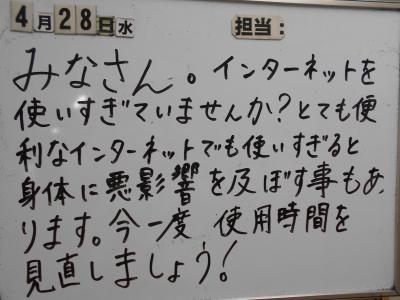 4月28日水 担当:
みなさん。インターネットを
使いすぎていませんか?とても便
利なインターネットでも使いすぎると
身体に悪影響を及ぼす事もあ
ります。今一度 使用時間を
見直しましょう!